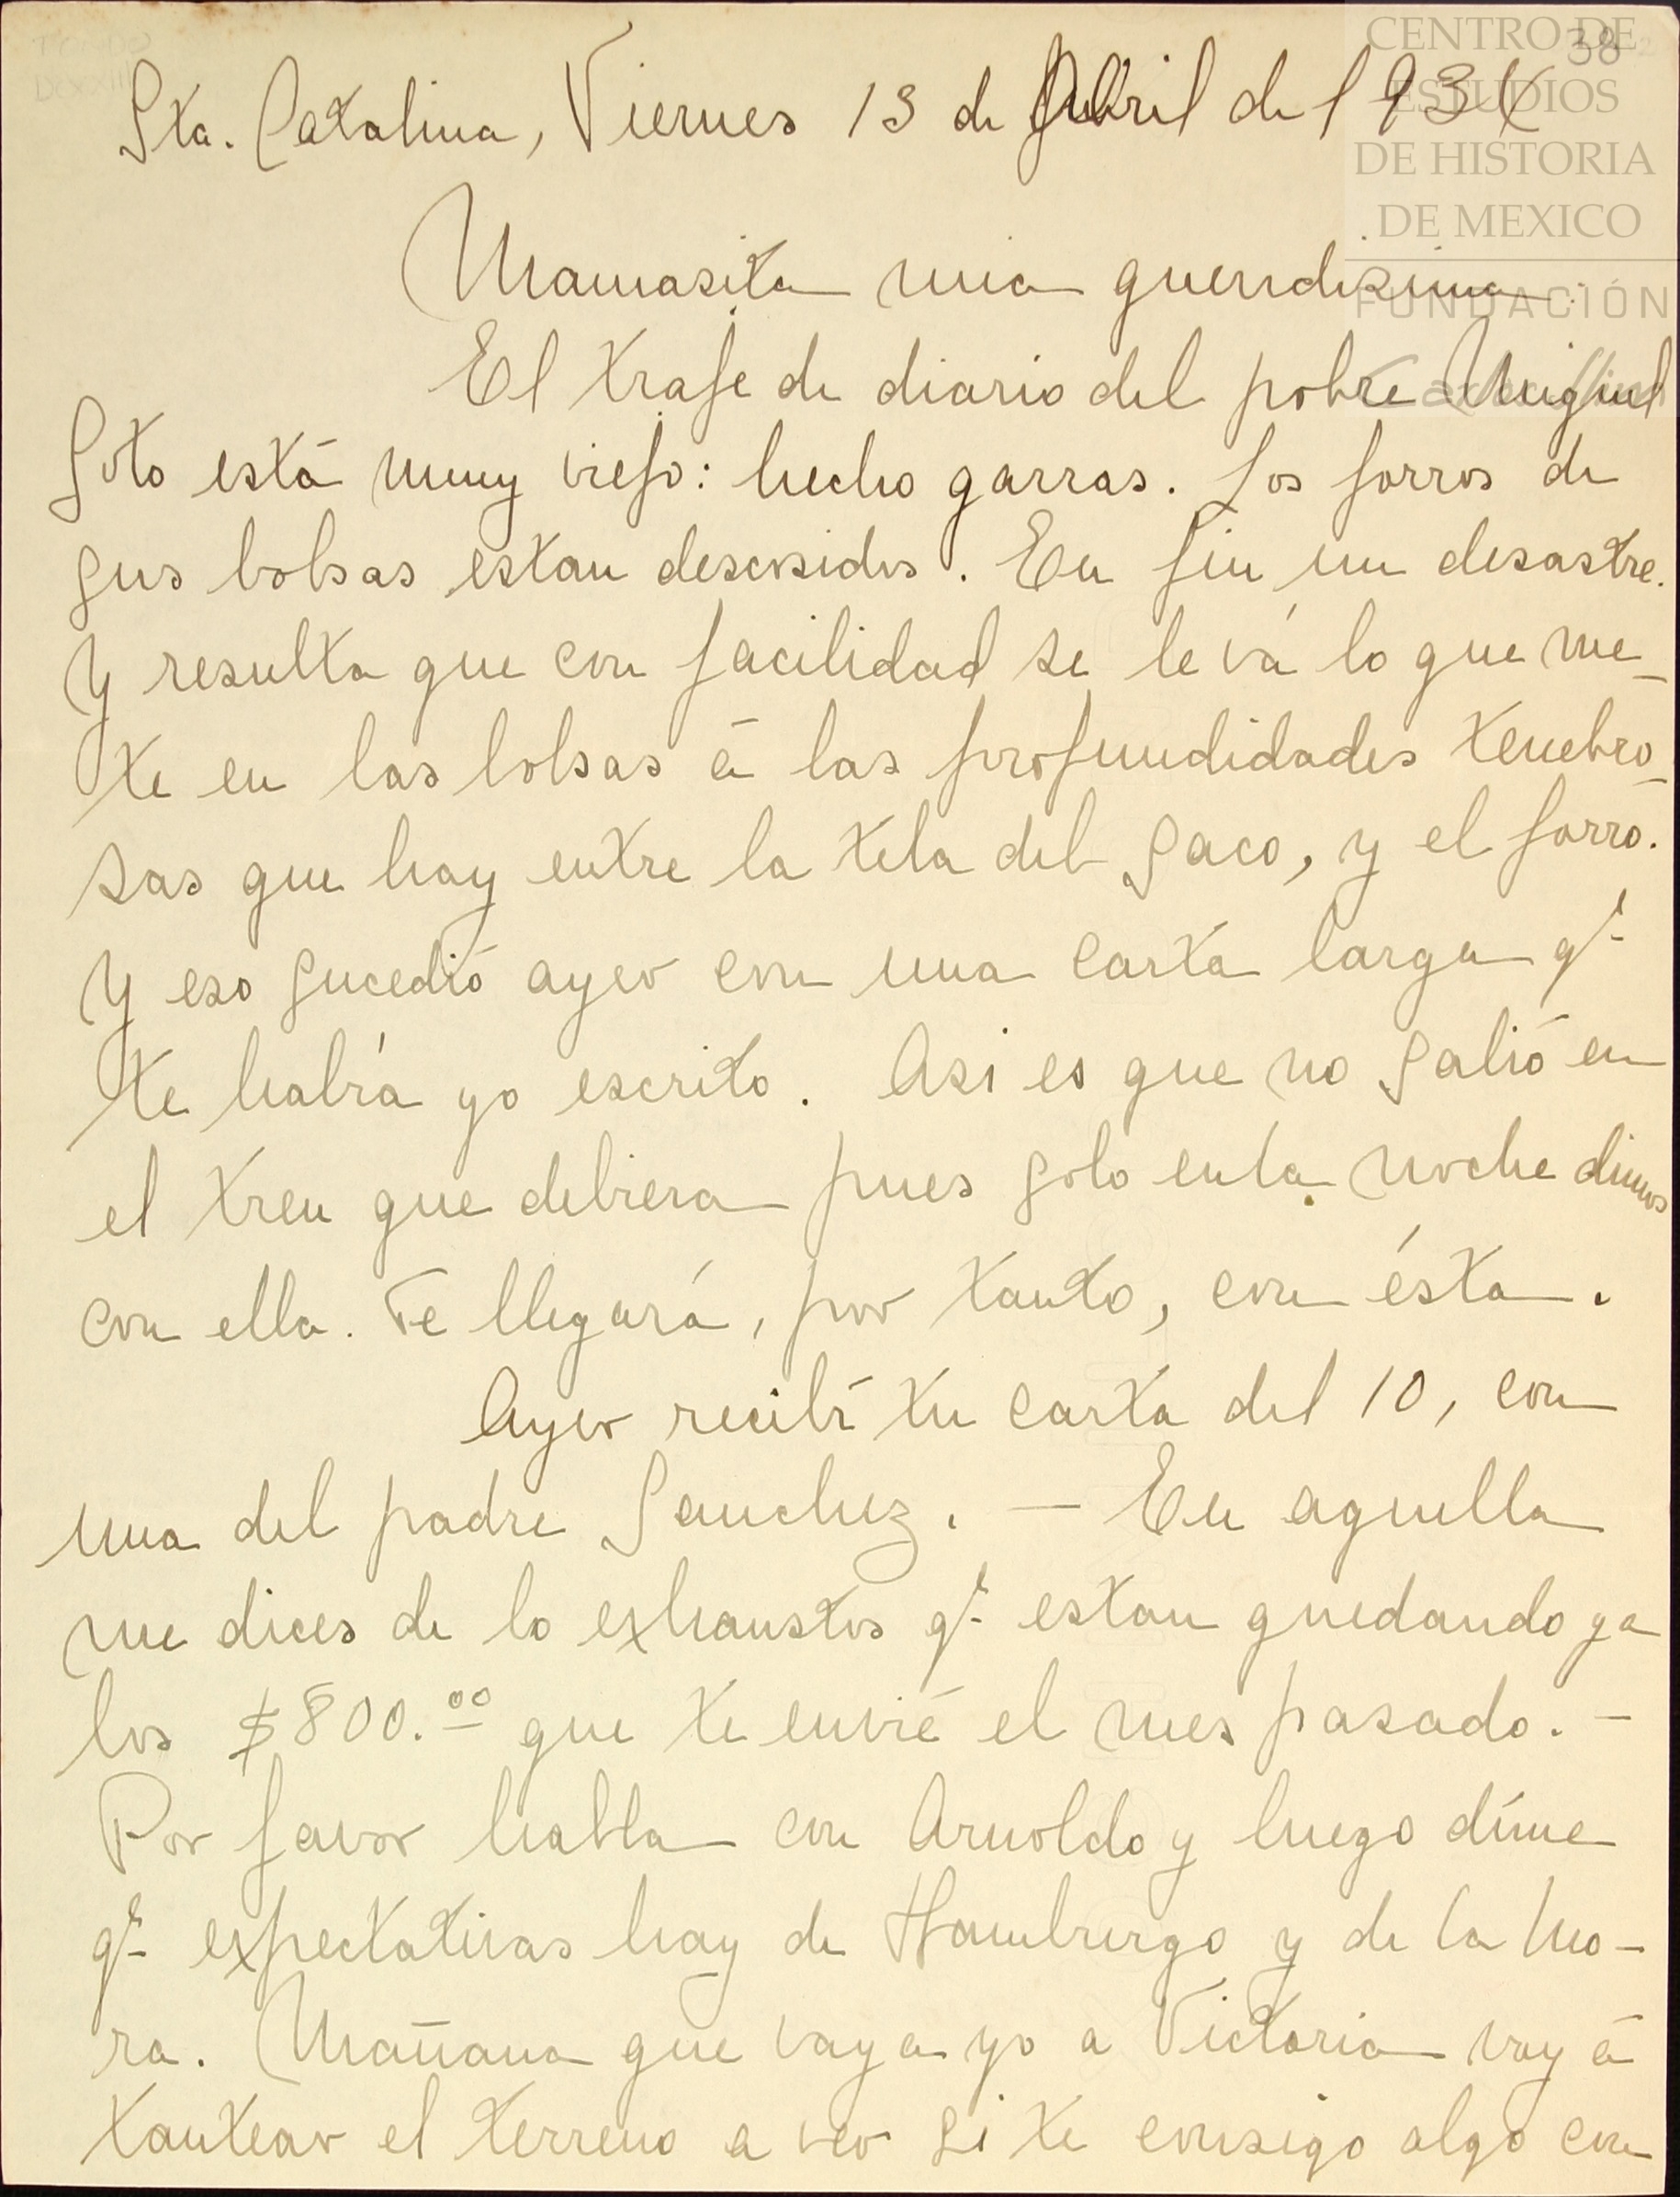 FONDO
DCXXIII
38
CENTRO DE
ESTUDIOS
DE HISTORIA
DE MEXICO
FUNDACIÓN
Sta. Catalina, Viernes 13 de Abril de 1934
Mamasita mia queridisima:
El traje de diario del pobre Miguel
Soto está muy viejo: hecho garras. Los forros de
sus bolsas estan descosidos. En fin un desastre.
Y resulta que con facilidad se le vá lo que me-
te en las bolsas á las profundidades tenebro-
sas que hay entre la tela del saco, y el forro.
Y eso sucedió ayer con una carta larga qe
te habrá yo escrito. Asi es que no salió en
el tren que debiera pues solo en la noche dimos
con ella. Te llegará, por tanto, con ésta.
Ayer recibí tu carta del 10, con
una del padre Sanchez. — En aquella
me dices de lo exhaustos qe estan quedando ya
los $800.00 que te envié el mes pasado. -
Por favor habla con Arnoldo y luego díme
qe expectativas hay de Hamburgo y de la Mo-
ra. Mañana que vaya yo a Victoria voy á
tantear el terreno a ver si te consigo algo con